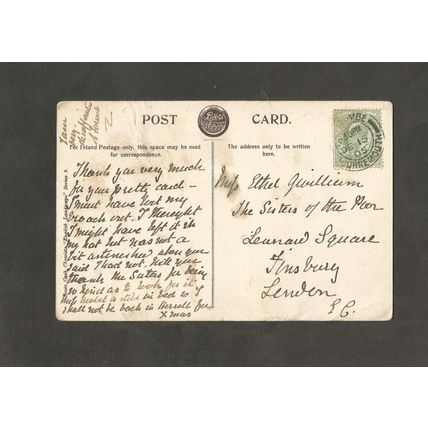 POST CARD.
For Inland Postage only, this space may be used
for correspondence.
The address only to be written
here.
Thank you very much
for your pretty card -
I must have lost my
broach out. I thought
I might have left it in
my hat but was not a
bit astonished when you
said I had not. Will you
thank the Sisters for being
so kind as to look for it
in bed so I
shall not be back in for
Xmas
I am
very
Miss Ethel Gwilliam
The Sisters of the Poor
Leonard Square
Finsbury
London
E.C.